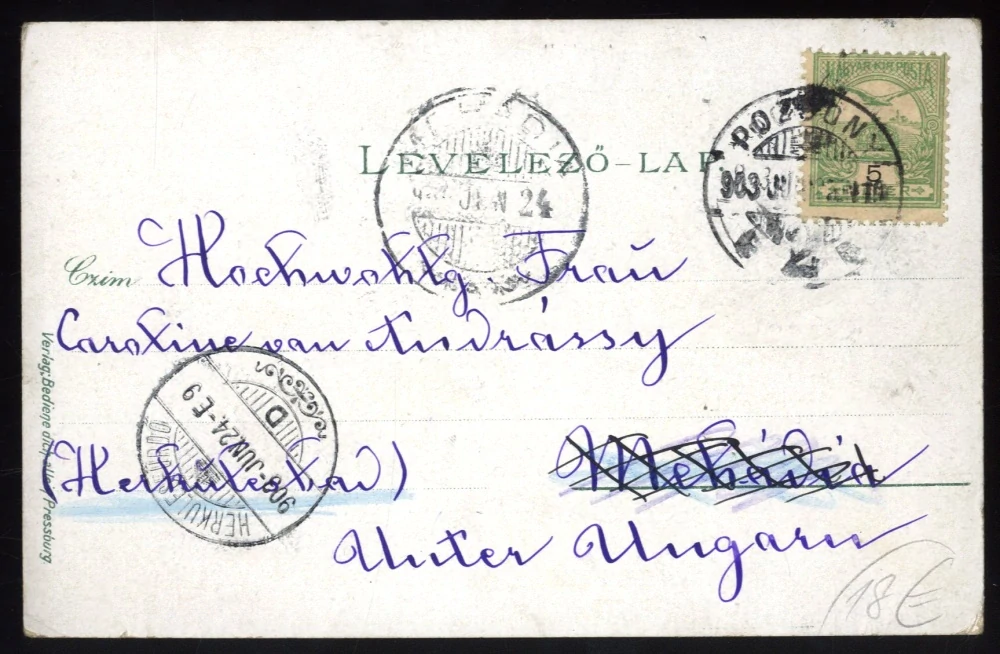 MAGYAR KIR. POSTA
5
POZSONY
LEVELEZŐ-LAP
JUN 24
Czim
Hochwohlg Frau
Caroline von Andrássy
(Herkulesbad) Mehádia
Unter Ungarn
HERKULESFÜRDŐ
903 JUN 24. E 9
D
Verlag: Bediene dich allein, Pressburg
18€